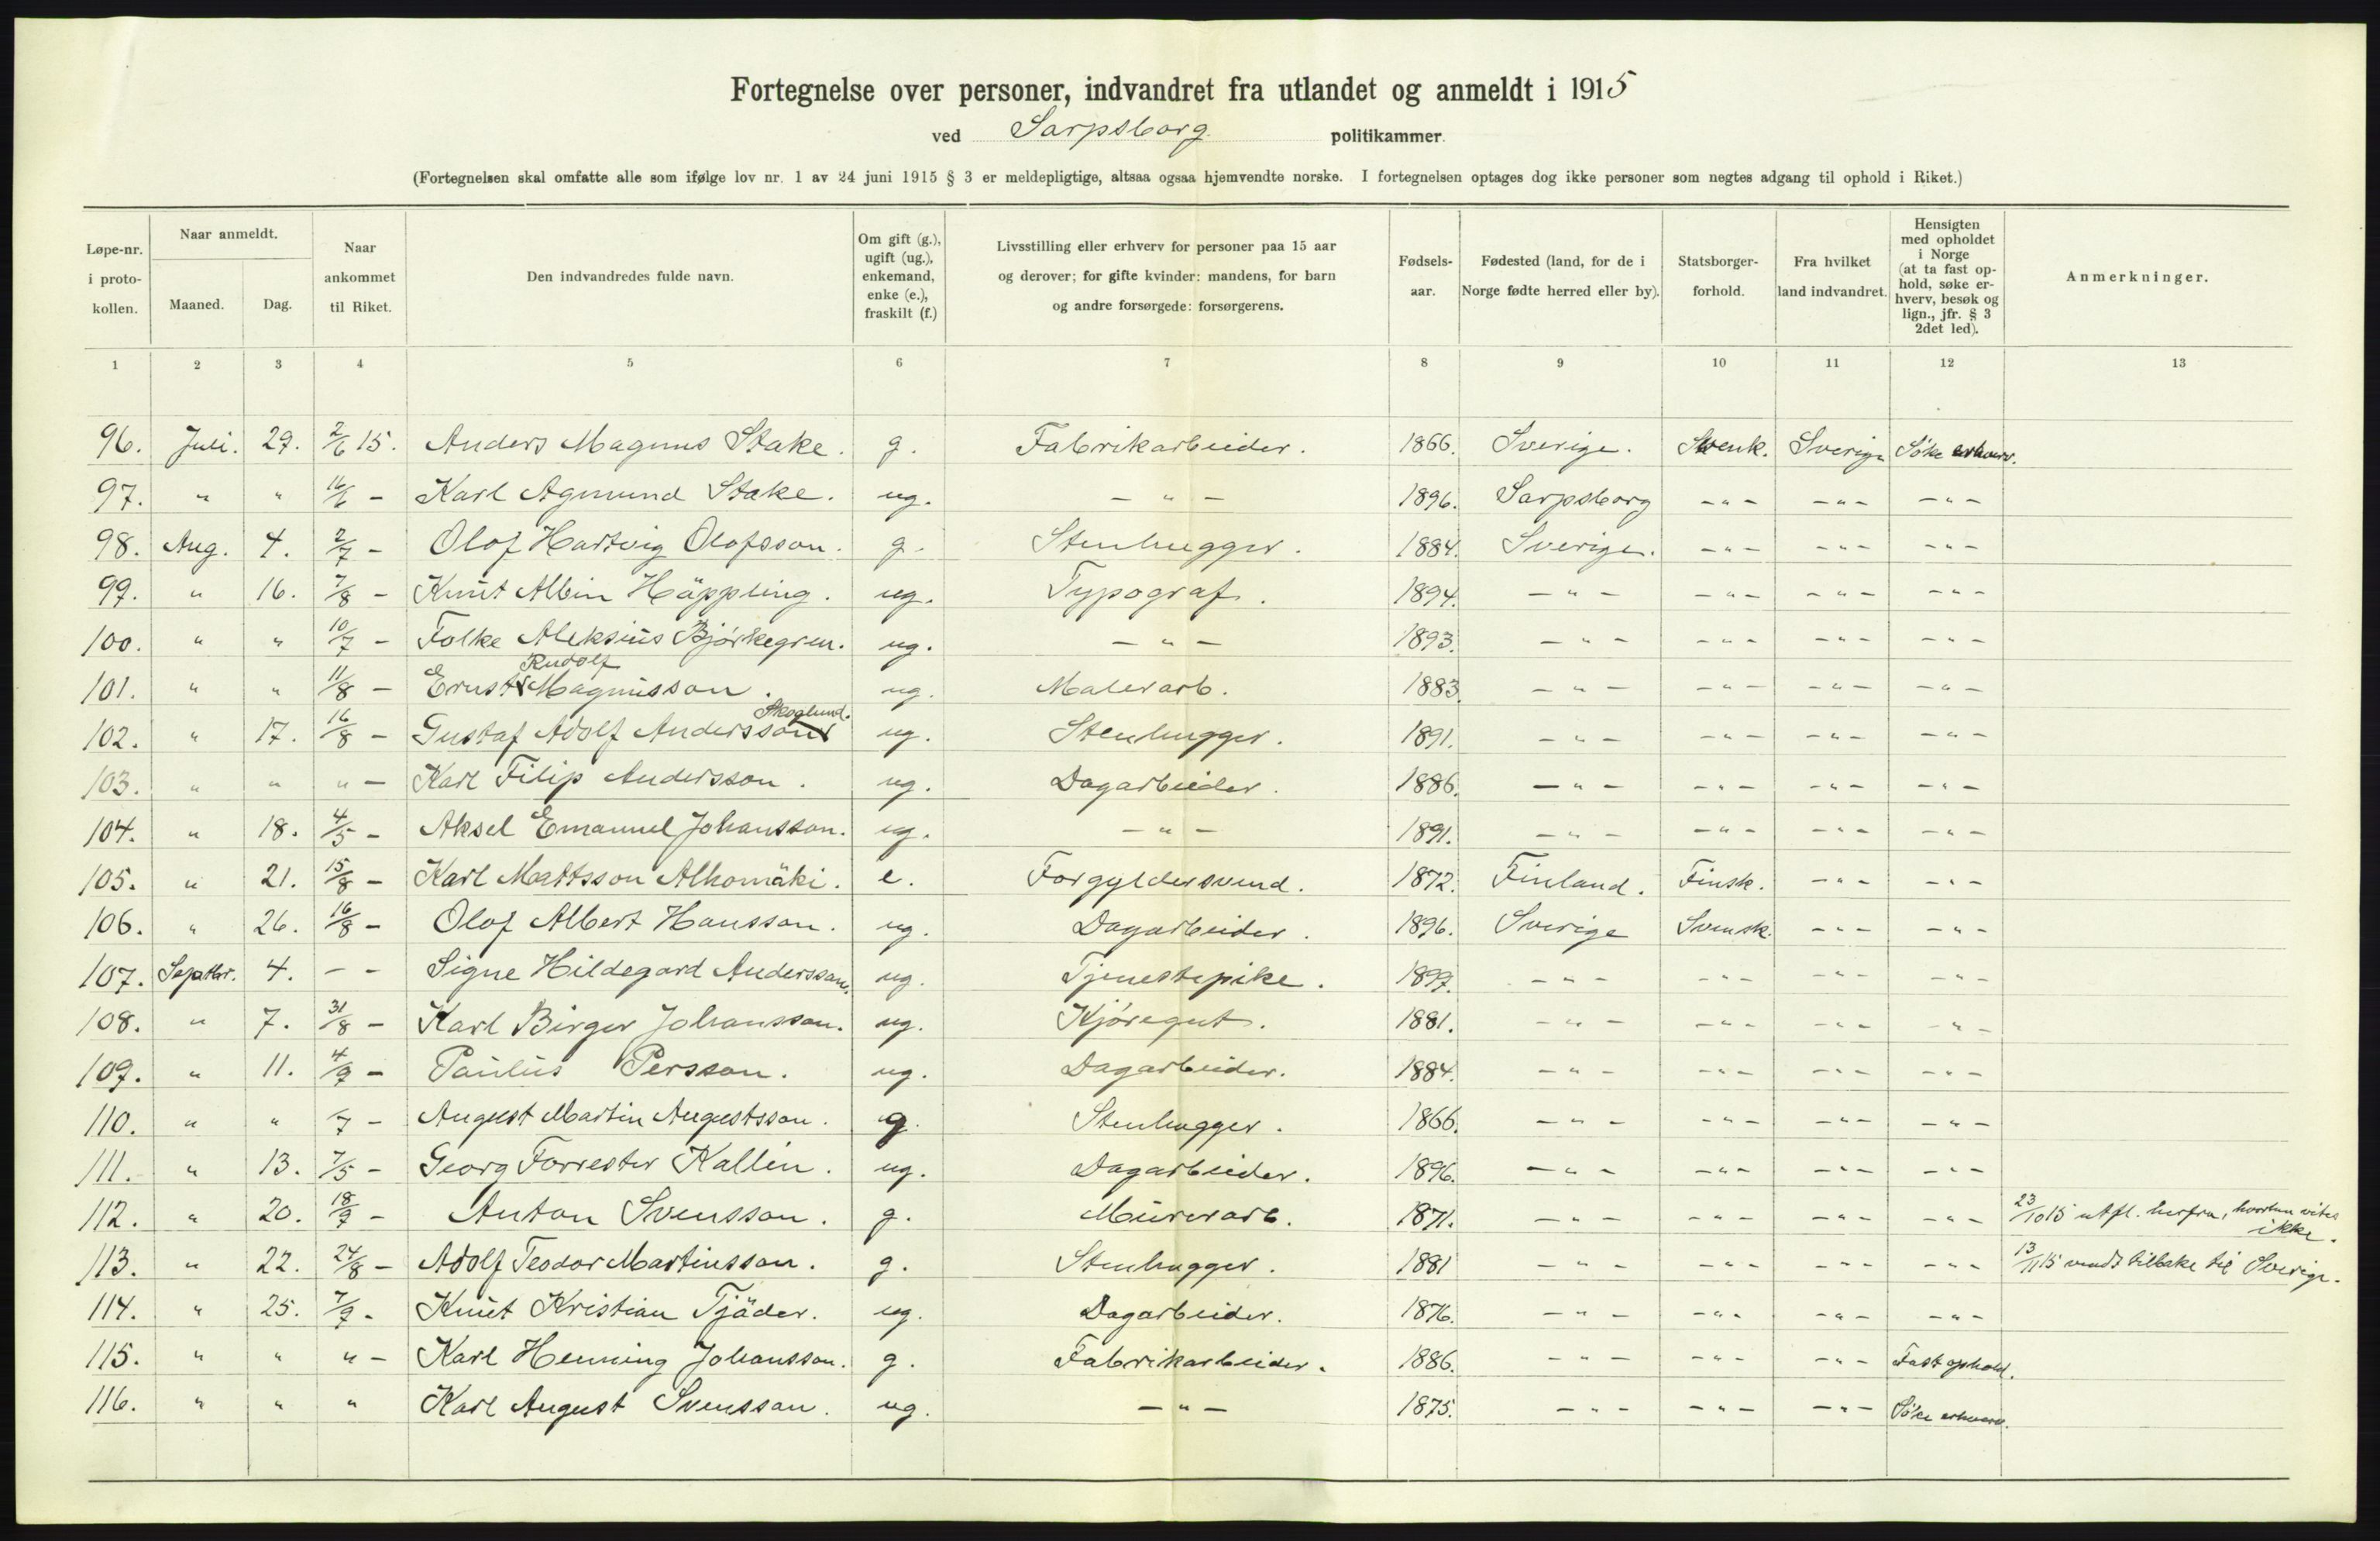 Fortegnelse over personer, indvandret fra utlandet og anmeldt i 1915
ved Sarpsborg politikammer.
(Fortegnelsen skal omfatte alle som ifølge lov nr. 1 av 24 juni 1915 § 3 er meldepligtige, altsaa ogsaa hjemvendte norske. I fortegnelsen optages dog ikke personer som negtes adgang til ophold i Riket.)
Løpe-nr. i proto- kollen. Naar anmeldt. Maaned. Dag. Naar ankommet til Riket. Den indvandredes fulde navn. Om gift (g.), ugift (ug.), enkemand, enke (e.), fraskilt (f.) Livsstilling eller erhverv for personer paa 15 aar og derover; for gifte kvinder: mandens, for barn og andre forsørgede: forsørgerens. Fødsels- aar. Fødested (land, for de i Norge fødte herred eller by). Statsborger- forhold. Fra hvilket land indvandret. Hensigten med opholdet i Norge (at ta fast op- hold, søke er- hverv, besøk og lign., jfr. § 3 2det led). Anmerkninger.
1 2 3 4 5 6 7 8 9 10 11 12 13
96. Juli. 29. 2/6 15. Anders Magnus Stake. g. Fabrikarbeider. 1866. Sverige. Svensk. Sverige Söke erhverv.
97. " " 16/6 - Karl Agmund Stake. ug. - " - 1896. Sarpsborg - " - - " - - " -
98. Aug. 4. 2/7 - Olof Hartvig Olofsson. g. Stenhugger. 1884. Sverige. - " - - " - - " -
99. " 16. 7/8 - Knut Albin Häppling. ug. Typograf. 1894. - " - - " - - " - - " -
100. " " 10/7 - Folke Aleksius Björkegren. ug. - " - 1893. - " - - " - - " - - " -
101. " " 11/8 - Ernst Rudolf Magnusson. ug. Malerarb. 1883. - " - - " - - " - - " -
102. " 17. 16/8 - Gustaf Adolf Andersson Skoglund. ug. Stenhugger. 1891. - " - - " - - " - - " -
103. " " " - Karl Filip Andersson. ug. Dagarbeider. 1886. - " - - " - - " - - " -
104. " 18. 4/5 - Aksel Emanuel Johansson. ug. - " - 1891. - " - - " - - " - - " -
105. " 21. 15/8 - Karl Mattsson Alhomäki. e. Forgyldersvend. 1872. Finland. Finsk. - " - - " -
106. " 26. 16/8 - Olof Albert Hansson. ug. Dagarbeider. 1896. Sverige Svensk. - " - - " -
107. Septbr. 4. - - Signe Hildegard Andersson. ug. Tjenestepike. 1897. - " - - " - - " - - " -
108. " 7. 31/8 - Karl Birger Johansson. ug. Kjöregut. 1881. - " - - " - - " - - " -
109. " 11. 4/9 - Paulus Persson. ug. Dagarbeider. 1884. - " - - " - - " - - " -
110. " " /7 - August Martin Augustsson. g. Stenhugger. 1866. - " - - " - - " - - " -
111. " 13. 7/5 - Georg Forrester Kallin. ug. Dagarbeider. 1896. - " - - " - - " - - " -
112. " 20. 18/9 - Anton Svensson. g. Murerarb. 1871. - " - - " - - " - - " - 23/10 15 utfl. herfra, hvorhen vites ikke.
113. " 22. 24/8 - Adolf Teodor Martinsson. g. Stenhugger. 1881 - " - - " - - " - - " - 13/11 15 vendt tilbake til Sverige.
114. " 25. 7/9 - Knut Kristian Tjäder. ug. Dagarbeider. 1876. - " - - " - - " - - " -
115. " " " - Karl Henning Johansson. g. Fabrikarbeider. 1886. - " - - " - - " - Fast ophold.
116. " " " Karl August Svensson. ug. - " - 1875. - " - - " - - " - Söke erhverv.